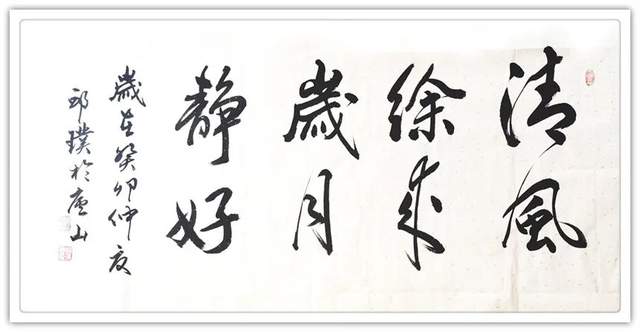 清風
徐来
歲月
静好
歲在癸卯仲夏
邱璞於廬山